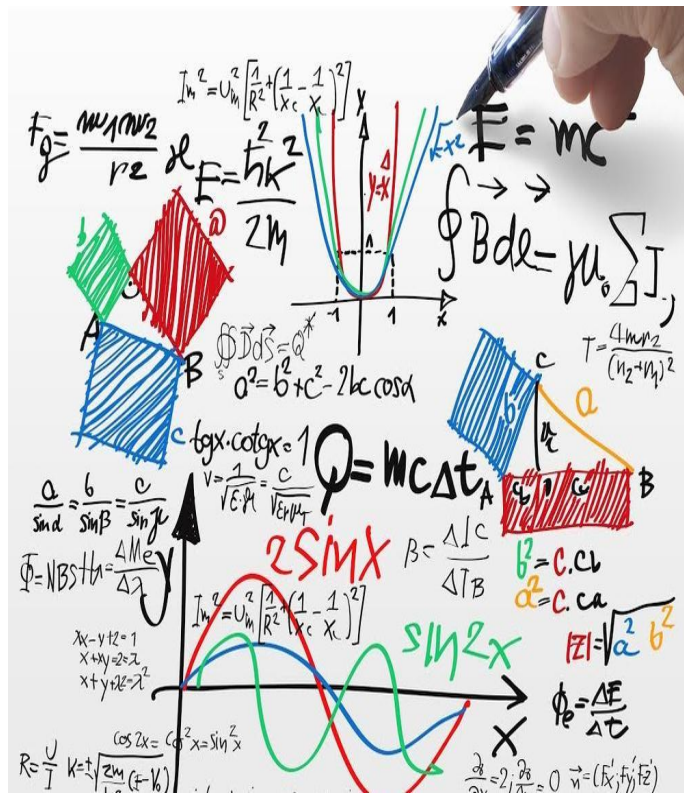 Im² = Um² [1/R² + (1/Xc - 1/X)²]
x
Fg = m1 m2 / r²
E = ħ²k² / 2m
y=x
E = mc
∮ B dl = μ₀ Σ I
b
a
A
B
c
-1
1
x
∯ D dS = Q*
S
a² = b² + c² - 2bc cosα
C
a
b
T = 4n1n2 / (n2+n1)²
tgx.cotgx = 1
v = 1/√ε.μ = c/√εrμr
Q = mcΔt
A
cb
ca
B
a/sinα = b/sinβ = c/sinγ
Φ = NBS
y
2sinx
B = ΔIC / ΔIB
b² = c.cb
a² = c.ca
Im² = Um² [1/R² + (1/Xc - 1/X)²]
sin2x
|z| = √a² b²
xx-y+z=1
x+xy=z=x
x+y+xz=x²
x
ϕe = ΔE / Δt
cos2x = cos²x = sin²x
R = U/I
k = ± √2m (E-V₀)
= 2; = 0
n = (fx', fy', fz')